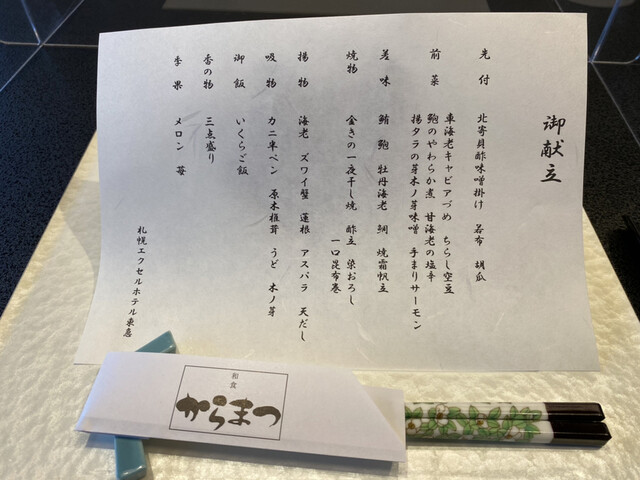 御献立
先付 北寄貝酢味噌掛け 若布 胡瓜
前菜 車海老キャビアづめ ちらし空豆
鮑のやわらか煮 甘海老の塩辛
揚タラの芽木ノ芽味噌 手まりサーモン
差味 鮪 鮑 牡丹海老 鯛 焼霜帆立
焼物 金きの一夜干し焼 酢立 染おろし
一口昆布巻
揚物 海老 ズワイ蟹 蓮根 アスパラ 天だし
吸物 カニ真ペン 原木椎茸 うど 木ノ芽
御飯 いくらご飯
香の物 三点盛り
季果 メロン 苺
札幌エクセルホテル東急
和食
からまつ